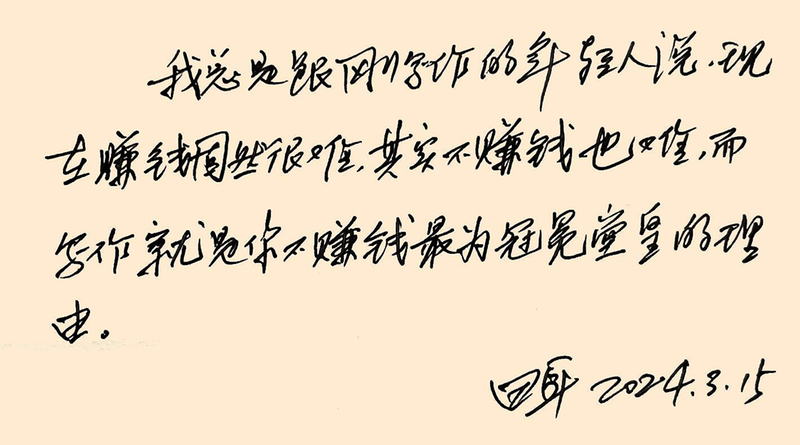 我总是跟刚写作的年轻人说，现
在赚钱固然很难，其实不赚钱也难，而
写作就是你不赚钱最为冠冕堂皇的理
由。
2024.3.15